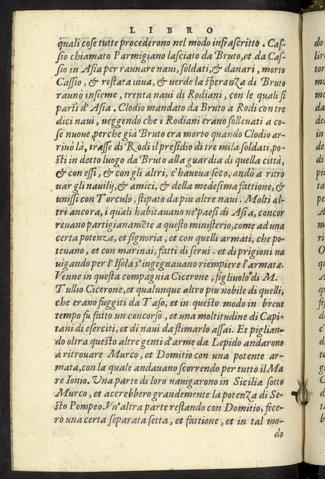 LIBRO
quali cose tutte procederono nel modo infrascritto. Cas-
sio chiamato Parmigiano lasciato da Bruto, et da Cas-
sio in Asia per raunare naui, soldati, & danari, morto
Cassio, & restata uiua, & uerde la speranza di Bruto
rauno insieme, trenta naui di Rodiani, con le quali si
partì d'Asia. Clodio mandato da Bruto a Rodi con tre
dici naui, ueggendo che i Rodiani erano solleuati a co-
se nuoue, perche già Bruto era morto quando Clodio ar-
riuò là, trasse di Rodi il presidio di tre mila soldati, po-
sti in detto luogo da Bruto alla guardia di quella città,
& con essi, & con gli altri, c'haueua seco, andò a ritro
uar gli nauilij, & amici, & della medesima fattione, &
unissi con Torculo, stipato da piu altre naui. Molti al-
tri ancora, i quali habitauano ne' paesi di Asia, concor
reuano partigianamēte a questo ministerio, come ad una
certa potenza, et signoria, et con quelli armati, che po-
teuano, et con marinari, fatti di serui, et di prigioni na
uigando per l'Isola s'ingegnauano riempiere l'armata.
Venne in questa compagnia Cicerone, figliuolo di M.
Tullio Cicerone, et qualunque altro piu nobile di quelli,
che erano fuggiti da Taso, et in questo modo in breue
tempo fu fatto un concorso, et una moltitudine di Capi-
tani di eserciti, et di naui da stimarlo assai. Et piglian-
do oltra questo altre genti d'arme da Lepido andarono
a ritrouare Murco, et Domitio con una potente ar-
mata, con la quale andauano scorrendo per tutto il Ma
re Ionio. Una parte di loro nauigarono in Sicilia sotto
Murco, et accrebbero grandemente la potenza di Se-
sto Pompeo. Vn'altra parte restando con Domitio, fece
ro una certa separata setta, et fattione, et in tal mo-
do